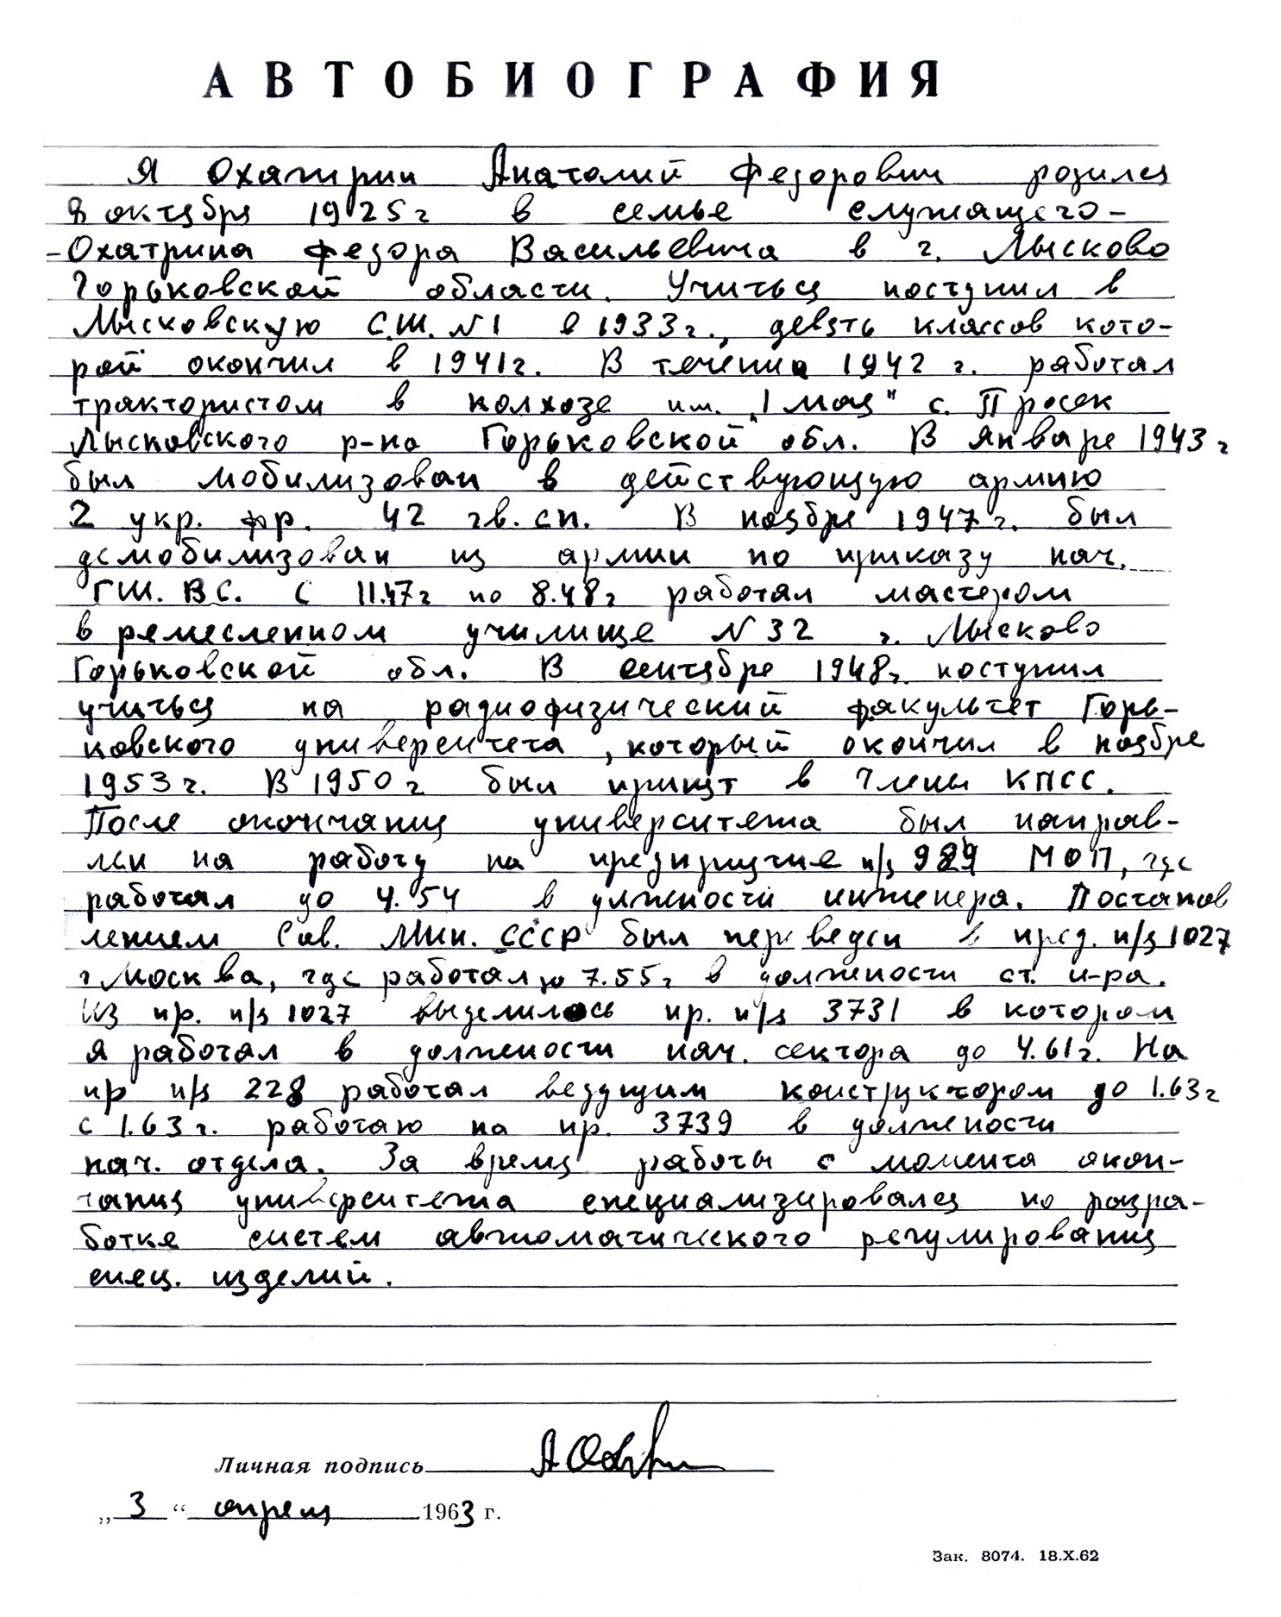 АВТОБИОГРАФИЯ
Я Охатрин Анатолий Федорович родился
8 октября 1925 г в семье служащего-
-Охатрина Федора Васильевича в г. Лысково
Горьковской области. Учиться поступил в
Лысковскую С.Ш. N1 в 1933 г., девять классов кото-
рой окончил в 1941 г. В течении 1942 г. работал
трактористом в колхозе им. „1 мая" с. Просек
Лысковского р-на Горьковской обл. В Январе 1943 г
был мобилизован в действующую армию
2 укр. фр. 42 гв. сп. В ноябре 1947 г. был
демобилизован из армии по приказу нач.
ГШ. ВС. С 11.47 г по 8.48 г работал мастером
в ремесленном училище N 32 г. Лысково
Горьковской обл. В сентябре 1948 г. поступил
учиться на радиофизический факультет Горь-
ковского университета, который окончил в ноябре
1953 г. В 1950 г был принят в члены КПСС.
После окончания университета был направ-
лен на работу на предприятие п/я 989 МОП, где
работал до 4.54 в должности инженера. Постанов
лением Сов. Мин. СССР был переведен в пред. п/я 1027
г Москва, где работал до 7.55 г в должности ст. и-ра.
Из пр. п/я 1027 выделилось пр. п/я 3731 в котором
я работал в должности нач. сектора до 4.61 г. На
пр п/я 228 работал ведущим конструктором до 1.63 г
с 1.63 г. работаю на пр. 3739 в должности
нач. отдела. За время работы с момента окон-
чания университета специализировался по разра-
ботке систем автоматического регулирования
спец. изделий.
Личная подпись
„3" апреля 1963 г.
Зак. 8074. 18.X.62